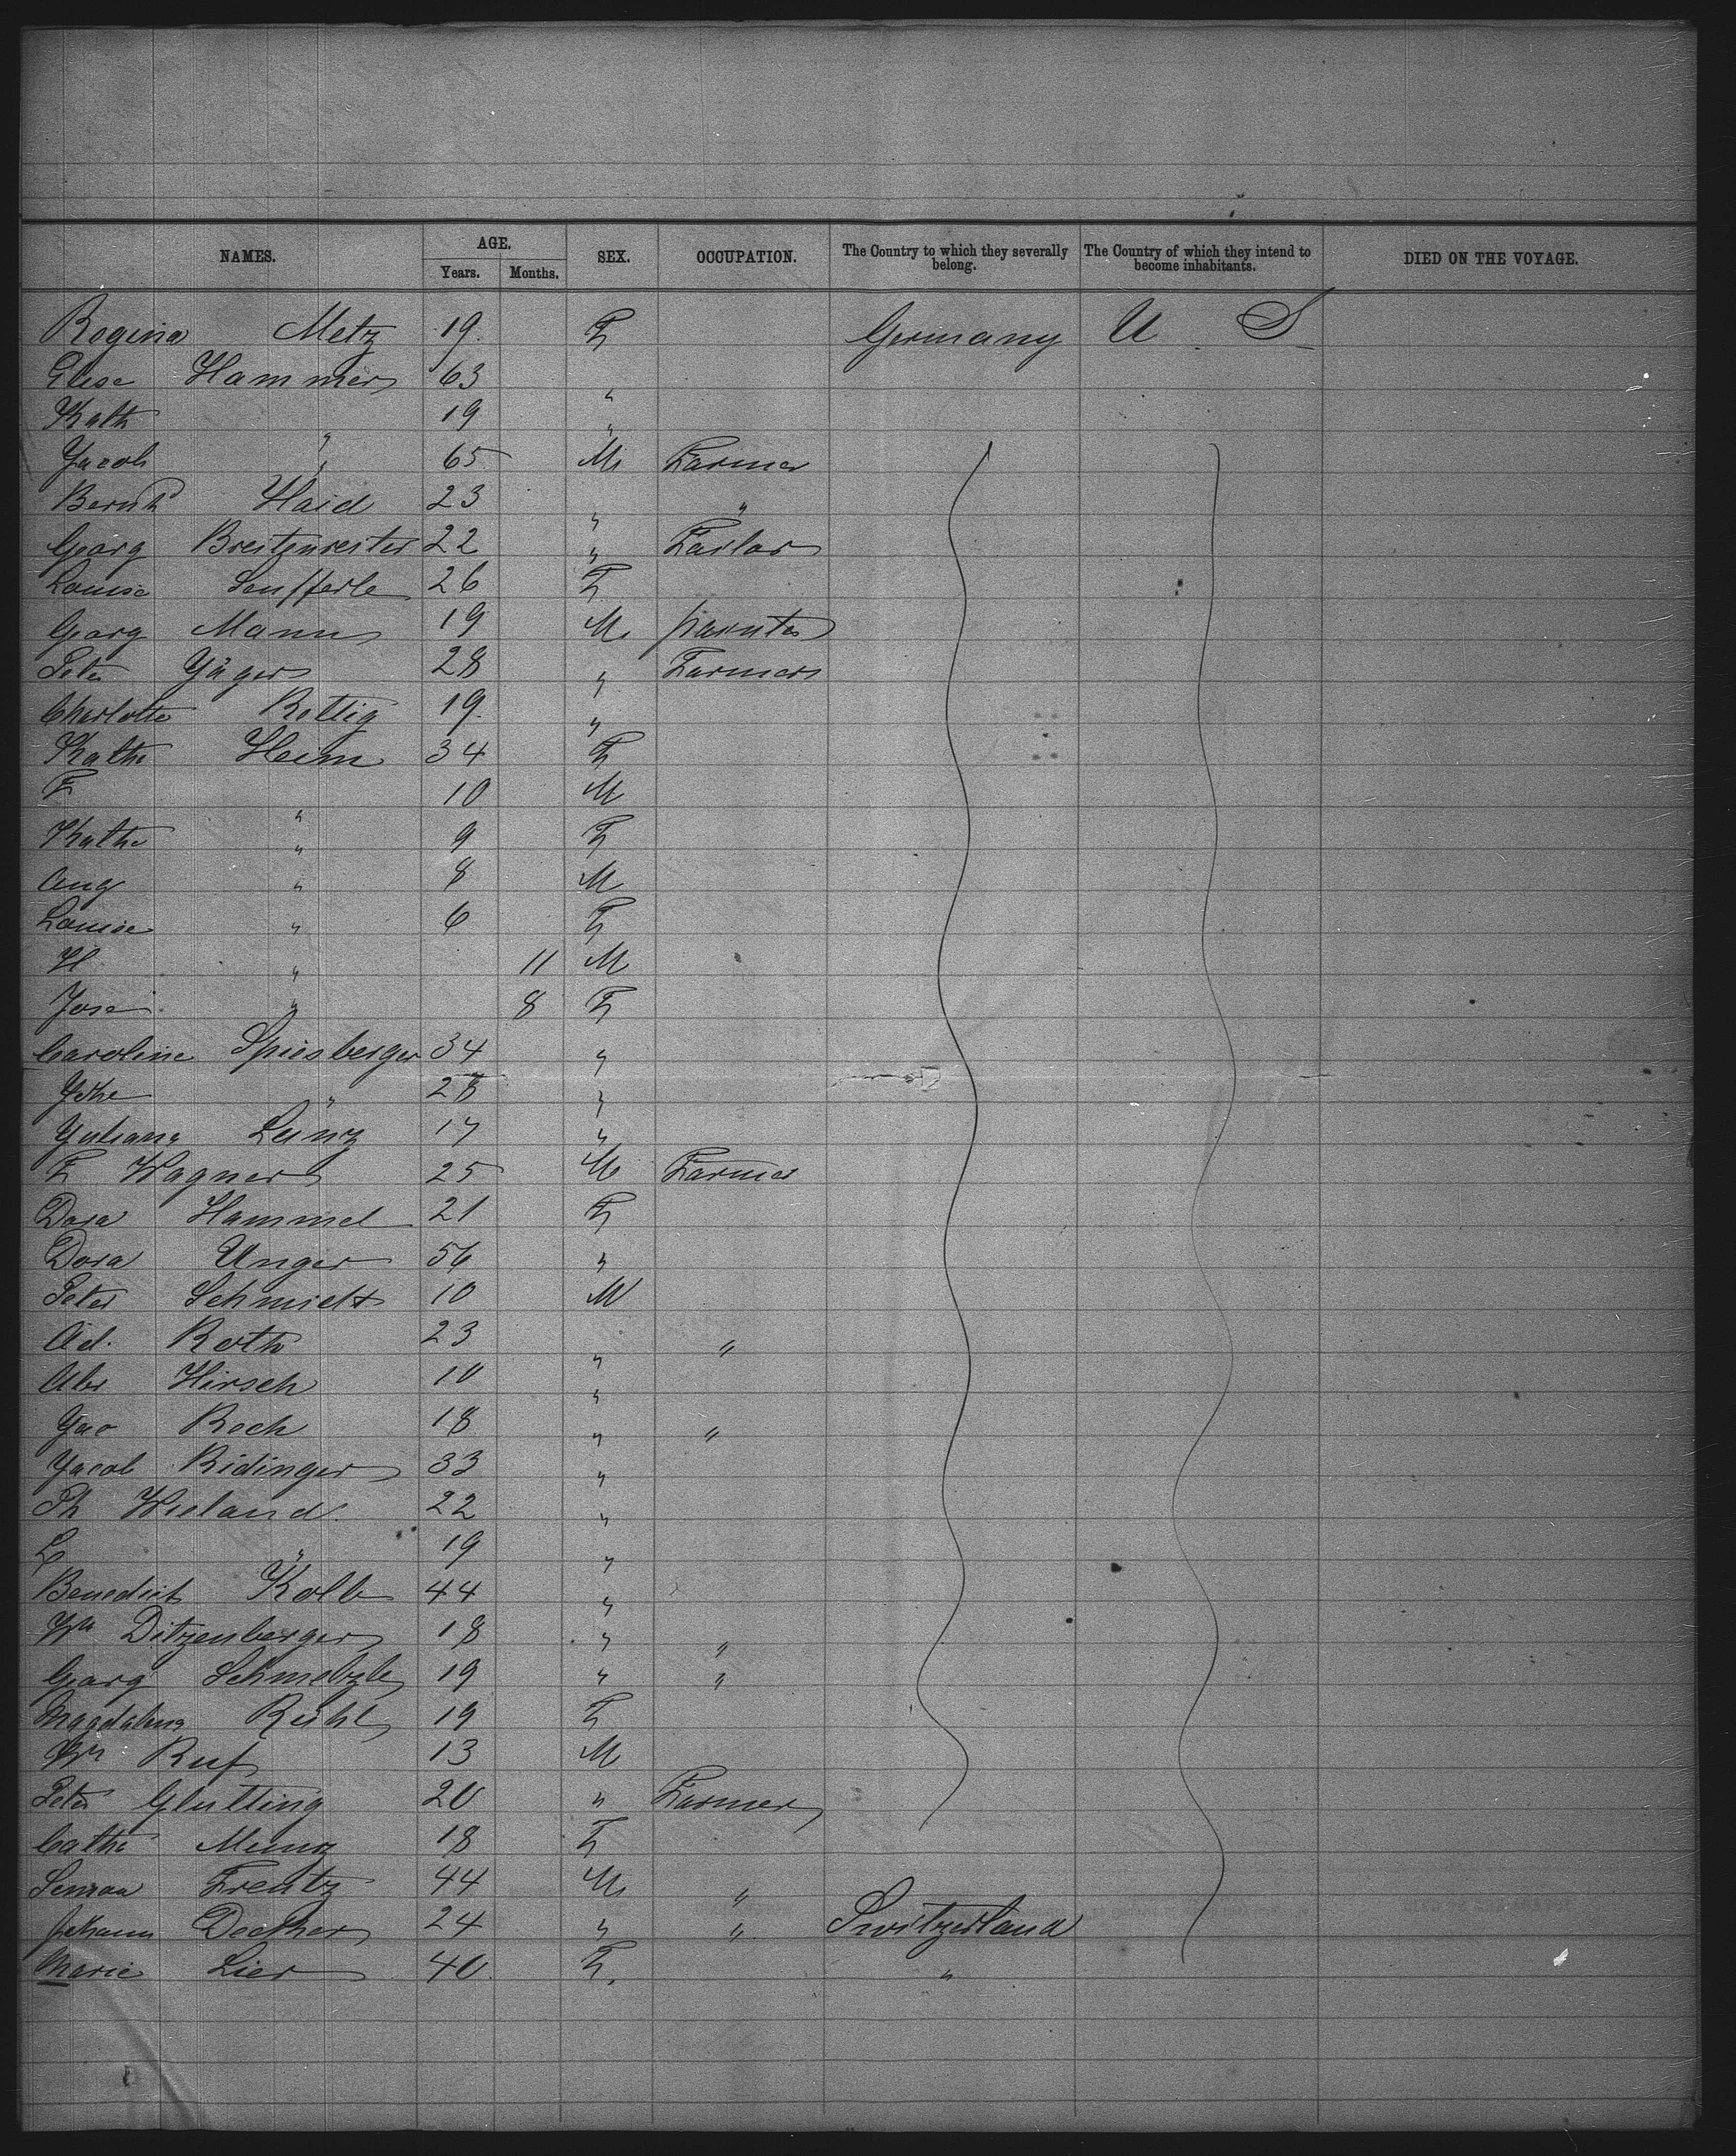 NAMES. AGE. SEX. OCCUPATION. The Country to which they severally belong. The Country of which they intend to become inhabitants. DIED ON THE VOYAGE.
Years. Months.
Regina Metz 19. F Germany U. S
Elise Hammer 63 "
Kath " 19 "
Jacob " 65 M Farmer
Bernh Haid 23 " "
Georg Breitenreiter 22 " Tailor
Louise Seufferle 26 F
Georg Mann 19 M painter
Peter Jäger 28 " Farmer
Charlotte Rettig 19. "
Kathe Heim 34 F
F " 10 M
Kathe " 9 F
Aug " 8 M
Louise " 6 F
H " 11 M
Jose " 8 F
Caroline Spiesberger 34 "
" 28 "
Juliana Lanz 17 "
F Wagner 25 M Farmer
Dora Hammel 21 F
Dora Unger 56 "
Peter Schmidt 10 M
Ad. Roth 23 " "
Abr Hirsch 10 "
Jac Rech 18 " "
Jacob Ridinger 33 "
Ph Wieland. 22 "
L " 19 "
Benedict Kolb 44 "
Wm Ditzenberger 18 " "
Georg Schmelzle 19 " "
Magdalena Rühl 19 F
Wm Ruf 13 M
Peter Glutting 20 " Farmer
Cathe 18 F
Frentz 44 M "
Johann Decker 24 " " Switzerland
Marie Lier 40. F. "